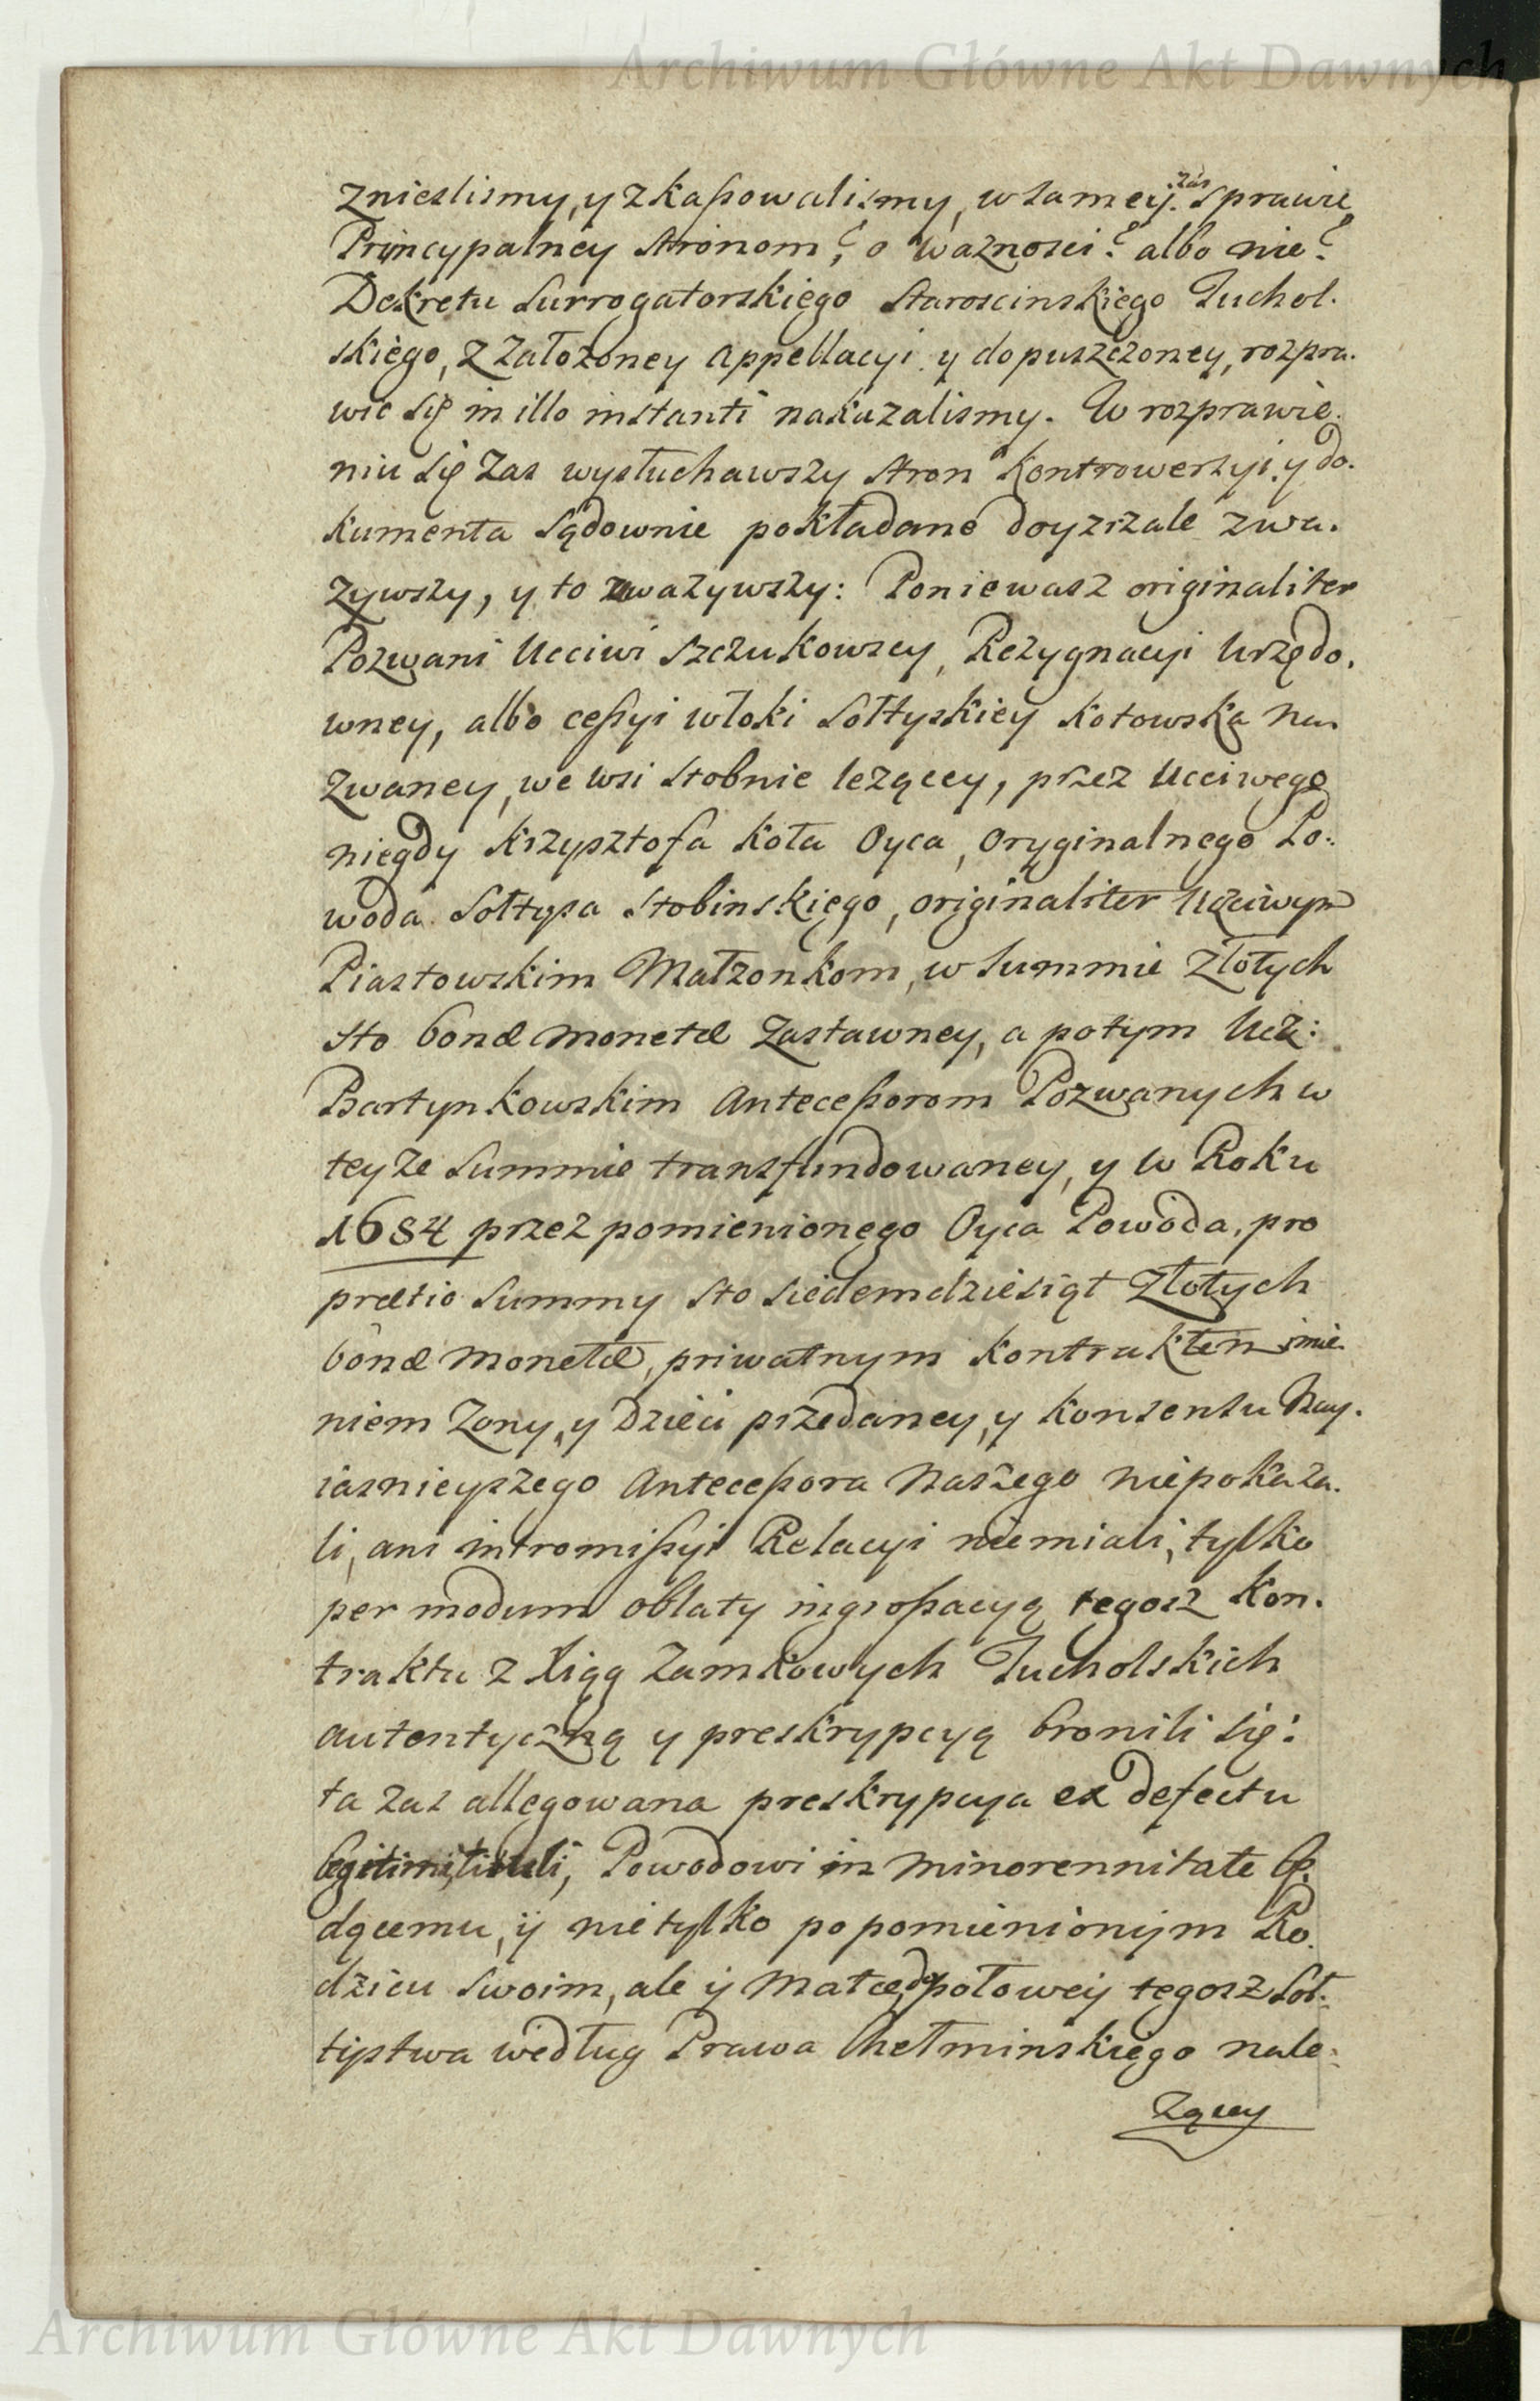 Archiwum Główne Akt Dawnych
znieslismy, y zkaßowalismy, w samey zas sprawie
Pryncypalney stronom? o waznosci? albo nie?
Dekretu Surrogatorskiego Staroscinskiego Tuchol-
skiego, z Załozoney Appellacyi y dopuszczoney, rozpra-
wic się in illo instanti nakazalismy. W rozprawie-
niu się zas wysłuchawszy stron Kontrowersyi y do-
kumenta sądownie pokładane doyzrzale zwa-
zywszy, y to zwazywszy: Poniewasz originaliter
Pozwani Ucciwi Szczukowscy, Rezygnacyi Urzędo-
wney, albo ceßyi włoki Sołtyskiey Kotowska na-
zwaney, we wsi Stobnie lezącey, przez Ucciwego
niegdy Krzysztofa Kota Oyca, Oryginalnego Po-
woda Sołtysa Stobinskiego, originaliter Uczciwym
Piastowskim Małzonkom, w summie Złotych
sto bonæ monetæ zastawney, a potym Ucz:
Bartynkowskim Anteceßorom Pozwanych w
teyze summie transfundowaney, y w Roku
1684 przez pomienionego Oyca Powoda, pro
prætio summy sto siedemdziesiąt Złotych
bonæ monetæ, priwatnym Kontraktem imie-
niem Zony, y Dzieci przedaney, y Konsensu Nay-
iasnieyszego Anteceßora Naszego niepokaza-
li, ani intromißyi Relacyi niemiali, tylko
per modum oblaty ingroßacyą tegosz Kon-
traktu z Xiąg Zamkowych Tucholskich
autentyczną y preskrypcyą bronili się:
ta zas allegowana preskrypcya ex defectu
legitimi tituli, Powodowi in minorennitate bę-
dącemu, ÿ nietylko po pomienionym Ro-
dzicu swoim, ale ÿ Matce, do połowey tegosz Soł-
tystwa według Prawa Chełminskiego nale-
zący
Archiwum Główne Akt Dawnych